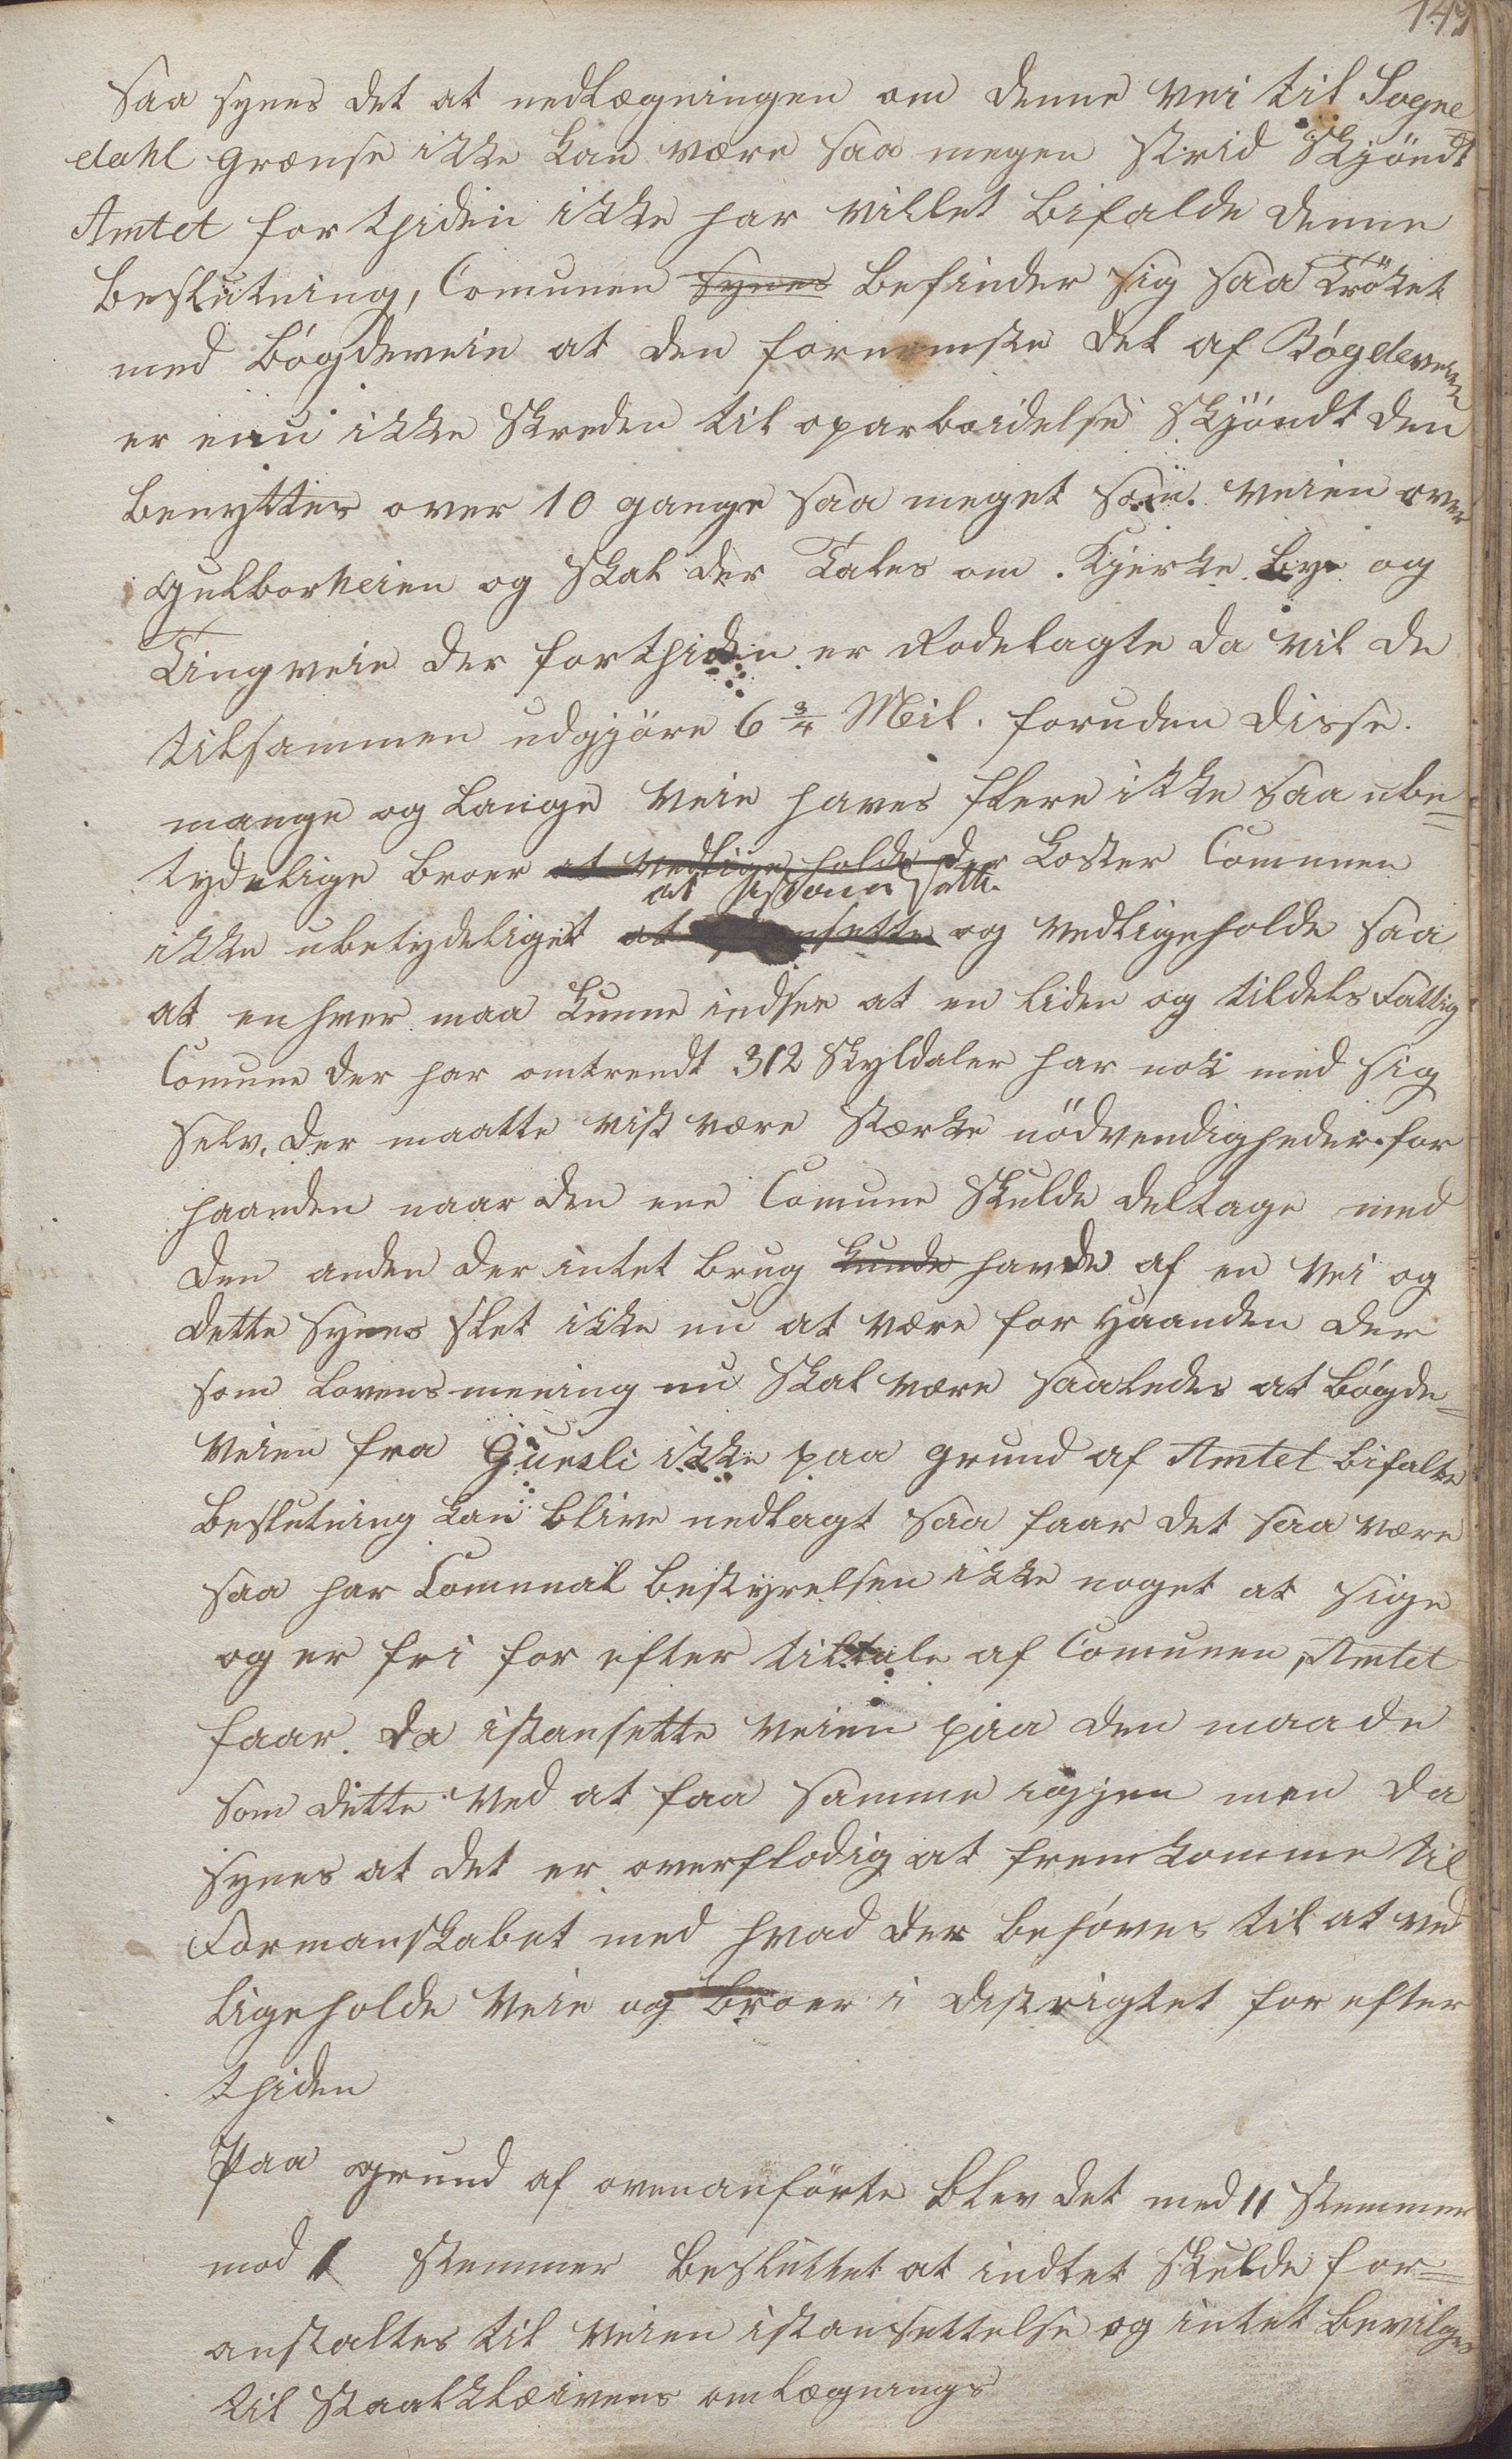 149
Saa synes det at nedlægningen om denne Vei til Sogne
dahl Grænse ikke kan være saa megen Strid Skjöndt
Amtet for thiden ikke har villet Bifalde denne
Beslutning, Comunen synes Befinder sig saa Trökket
med Bögdeveie at den fornemste Del af Bögdeveien
er enu ikke Skreden til oparbeidelse Skjöndt den
Benyttes over 10 gange saa meget som Veien over
Gulborheien og Skal der Tales om Kjerke Bye og
Tingveie der for thiden er Rodelagte da vil de
tilsammen udgjöre 6 3/4 Mil. foruden Disse
mange og Lange Veie haves flere ikke saa ube=
tydelige Broer at vedligeholde der koster Comunen
at istand sætte
ikke ubetydeliget at og vedligeholde saa
at enhver maa kunne indsee at en liden og tildels Fattig
Comune der har omtrendt 312 Skyldaler har nok med sig
selv, Der maatte vist være stærke nödvendigheder for
haanden naar den ene Comune Skulde deltage med
den anden der intet brug kunde havde af en Vei og
dette synes slet ikke nu at være for Haanden der
som Lovens mening nu Skal være saaledes at Bögde=
Veien fra ikke paa grund af Amtet bifalte
Beslutning kan blive nedlagt saa faar det saa være
saa har Comunal Bestyrelsen ikke noget at sige
og er fri for efter tiltale af Comunen, Amtet
faar da istansette Veien paa den maade
som dette ved at faa samme igjen men da
synes at det er overflodig at fremkomme til
Formanskabet med hvad der behöves til at ved
ligeholde Veie og Broer i Distrigtet for efter
thiden
Paa Grund af ovenanförte Blev det med 11 Stemmer
mod 1 Stemmer Besluttet at indtet Skulde for=
anstaltes til Veien istansettelse og intet Bevilges
til Staalkleivens omlægnings